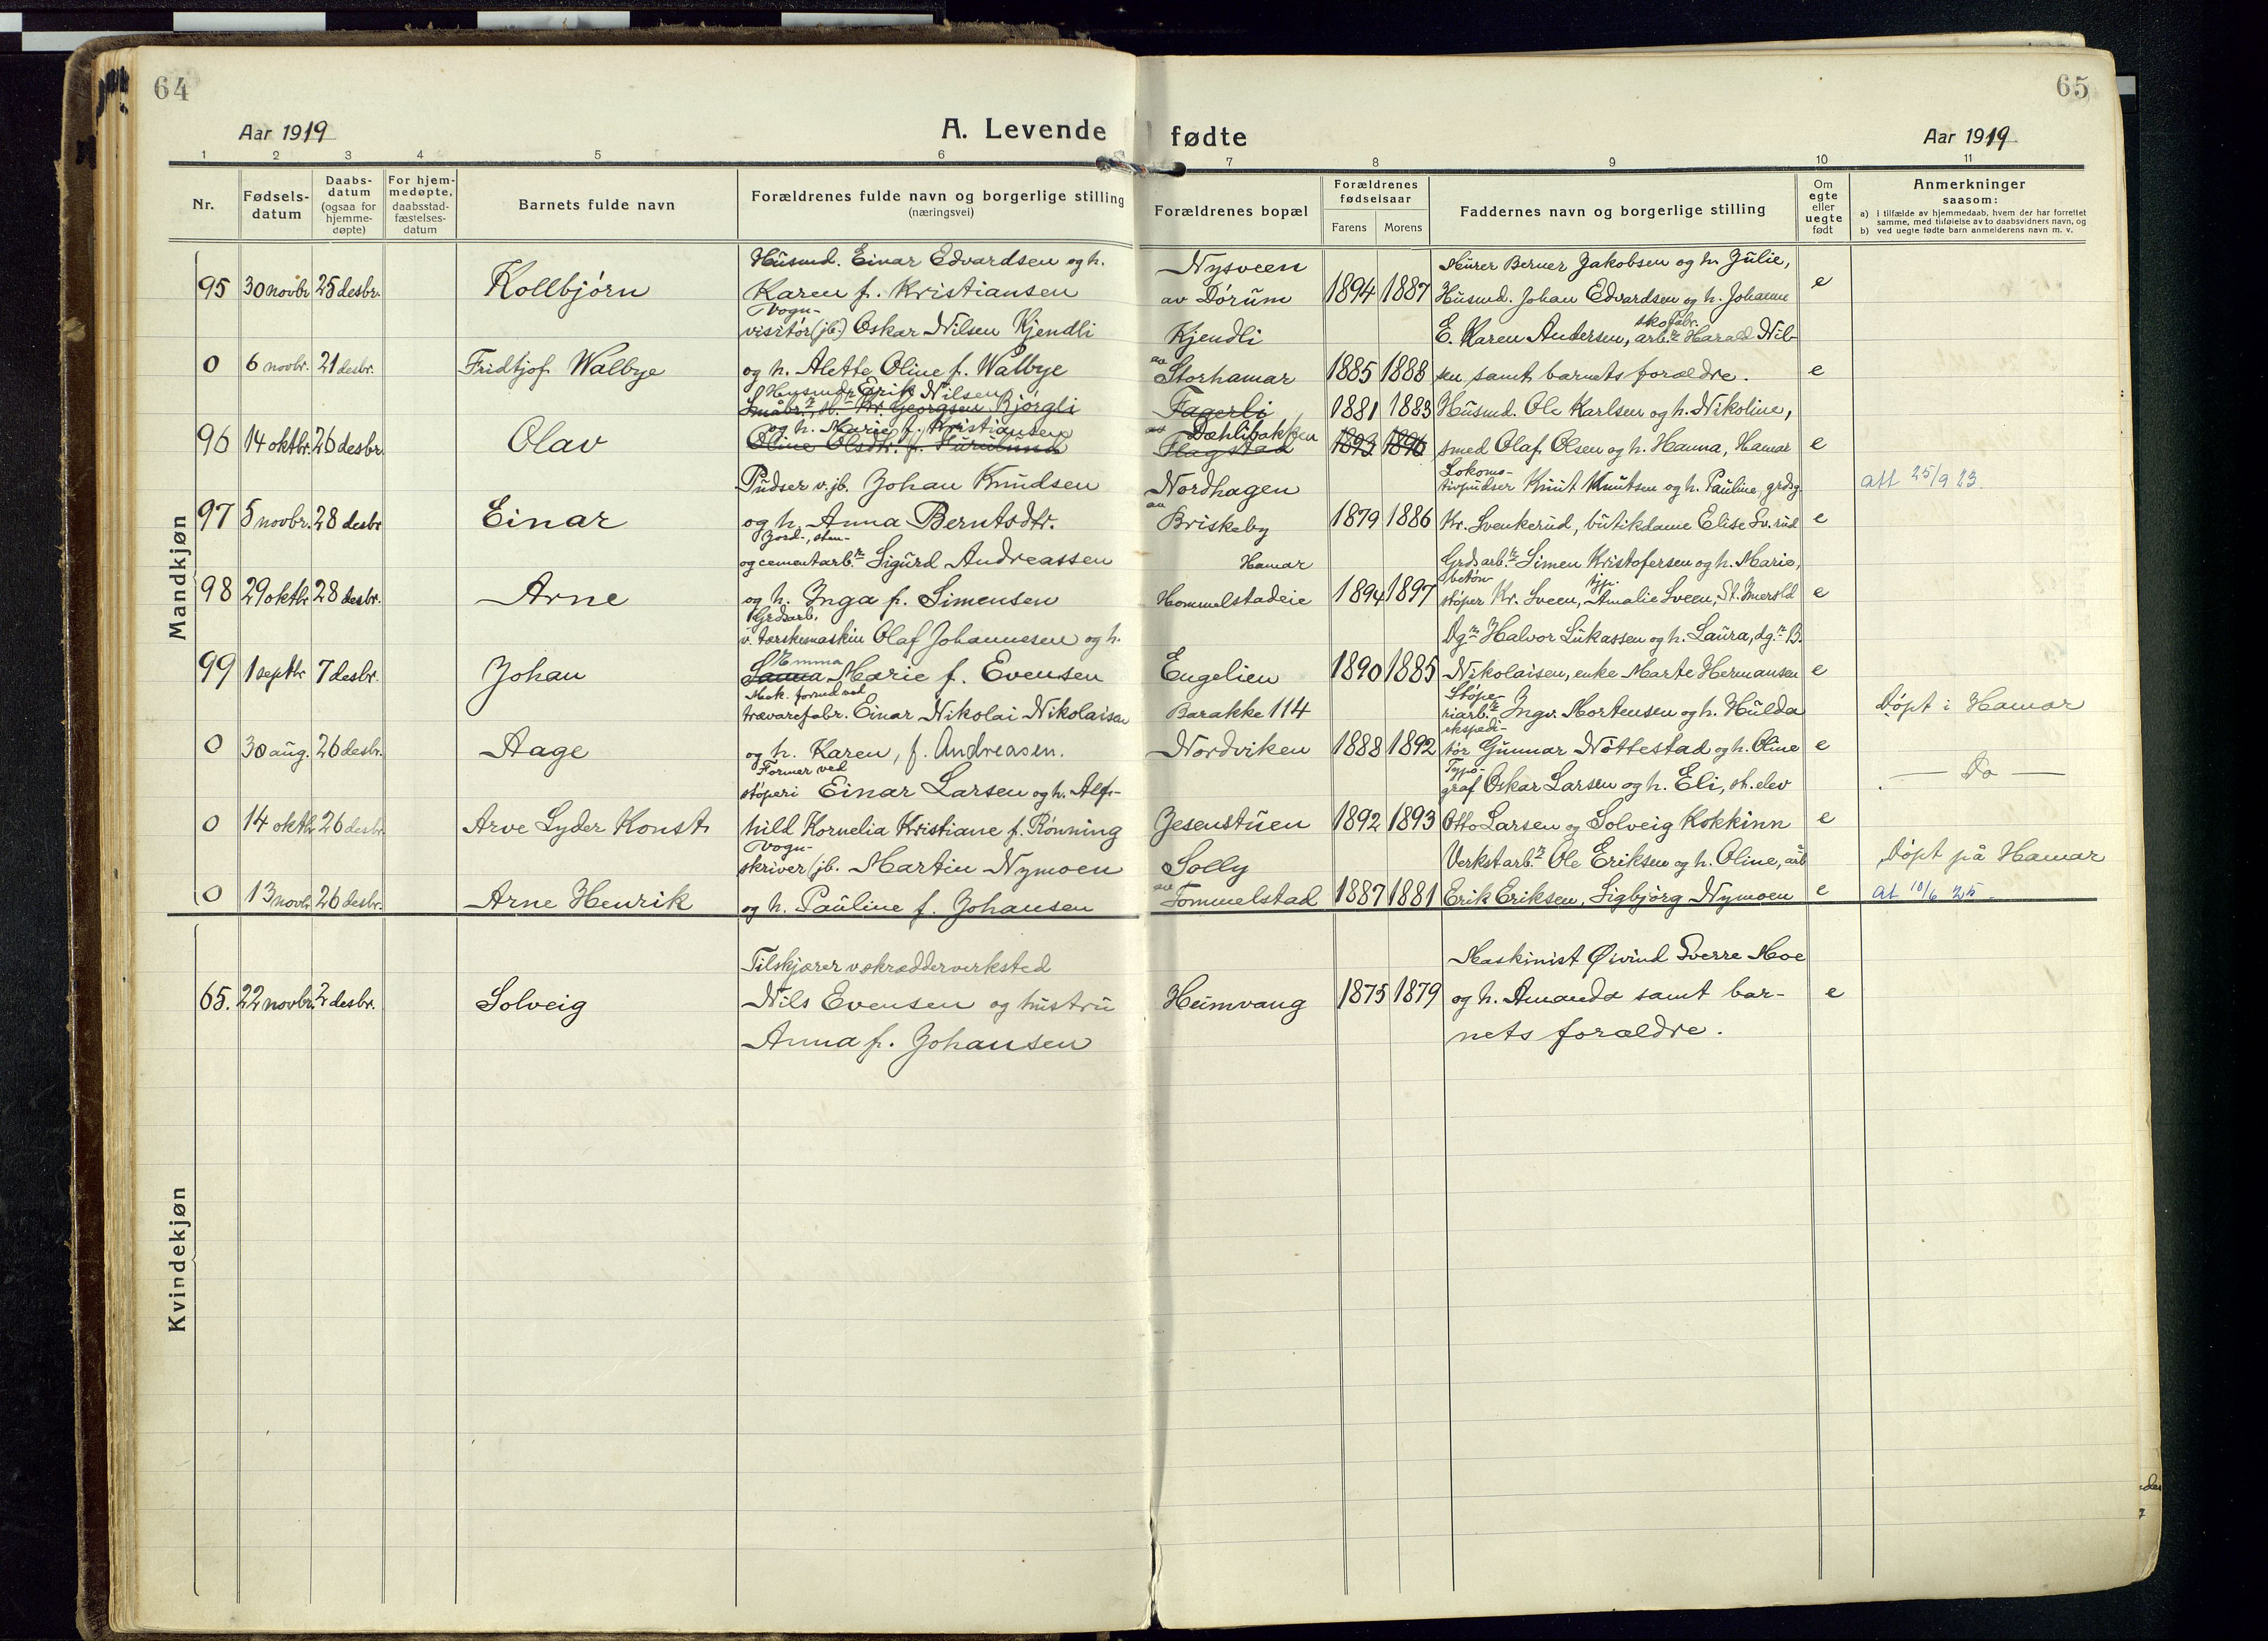 64
65
Aar 1919
A. Levende
fødte
Aar 1919
1 2 3 4 5 6 7 8 9 10 11
Nr.
Fødsels-
datum
Daabs-
datum
(ogsaa for
hjemme-
døpte)
For hjem-
medøpte,
daabsstad-
fæstelses-
datum
Barnets fulde navn
Forældrenes fulde navn og borgerlige stilling
(næringsvei)
Forældrenes bopæl
Forældrenes
fødselsaar
Farens Morens
Faddernes navn og borgerlige stilling
Om
egte
eller
uegte
født
Anmerkninger
saasom:
a) i tilfælde av hjemmedaab, hvem der har forrettet
samme, med tilføielse av to daabsvidners navn, og
b) ved uegte fødte barn anmelderens navn m. v.
Mandkjøn
Husmd. Einar Edvardsen og h. Nysveen Murer Berner Jakobsen og h. Julie,
95 30 novbr 25 desbr. Kollbjørn Karen f. Kristiansen av Dørum 1894 1887 Husmd. Johan Edvardsen og h. Johanne e
Vogn- skofabr.
visitør (jb.) Oskar Nilsen Kjendli Kjendli E. Karen Andersen, arb.r Harald Nil-
0 6 novbr. 21 desbr. Fridtjof Walbye og h. Alette Oline f. Walbye av Storhamar 1885 1888 sen samt barnets forældre. e
Husmdr Erik Nilsen
Småbr.r, st.r Kr. Georgsen Bjørgli Fagerli 1881 1883 Husmd. Ole Karlsen og h. Nikoline,
og h. Marie f. Kristiansen av Dæhlibakken
96 14 oktbr. 26 desbr. Olav Oline Olsdtr. f. Furulund Flagstad 1893 1896 smed Olaf Olsen og h. Hanna, Hamar e
Lokomo-
Pudser v. jb. Johan Knudsen Nordhagen tivpudser Knut Knutsen og h. Pauline, grdsg. att 25/9 23.
97 5 novbr. 28 desbr Einar og h. Anna Berntsdtr. av Briskeby 1879 1886 Kr. Svenkerud, butikdame Elise Sv.rud e
Jord-, sten-
og cementarb.r Sigurd Andreassen Hamar Grdsarb.r Simen Kristofersen og h. Marie,
betón- tjp.
98 29 oktbr 28 desbr. Arne og h. Inga f. Simensen Hommelstadeie 1894 1897 støper Kr. Sveen, Amalie Sveen, St. Imersld e
Grdsarb.
v. tærskemaskin Olaf Johannesen og h. Dg.r Halvor Lukassen og h. Laura, dg.r B.
Emma
99 1 septbr 7 desbr. Johan Sanna Marie f. Evensen Engelien 1890 1885 Nikolaisen, enke Marte Hermansen e
Mek. formd ved Støpe-
trævarefabr. Einar Nikolai Nikolaisen Barakke 114 riarb.r Ingv. Mortensen og h. Hulda Døpt i Hamar
ekspedi-
0 30 aug. 26 desbr. Aage og h. Karen, f. Andreasen. Nordviken 1888 1892 tør Gunnar Nøttestad og h. Oline e
Former ved Typo-
støperi Einar Larsen og h. Alf- graf Oskar Larsen og h. Eli, st. elev — Do —
0 14 oktbr 26 desbr. Arve Lyder Konst. hild Kornelia Kristiane f. Rønning Jesenstuen 1892 1893 Otto Larsen og Solveig Kokkinn e
Vogn-
skriver (jb. Martin Nymoen Solly Verkstarb.r Ole Eriksen og h. Oline, arb Døpt på Hamar
0 13 novbr. 26 desbr. Arne Henrik og h. Pauline f. Johansen av Tommelstad 1887 1881 Erik Eriksen, Sigbjørg Nymoen e at 10/6 25.
Kvindekjøn
Tilskjærer v. skrædderverksted Maskinist Øivind Sverre Moe
65. 22 novbr. 2 desbr. Solveig Nils Evensen og hustru Heimvang 1875 1879 og h. Amanda samt bar- e
Anna f. Johansen nets forældre.